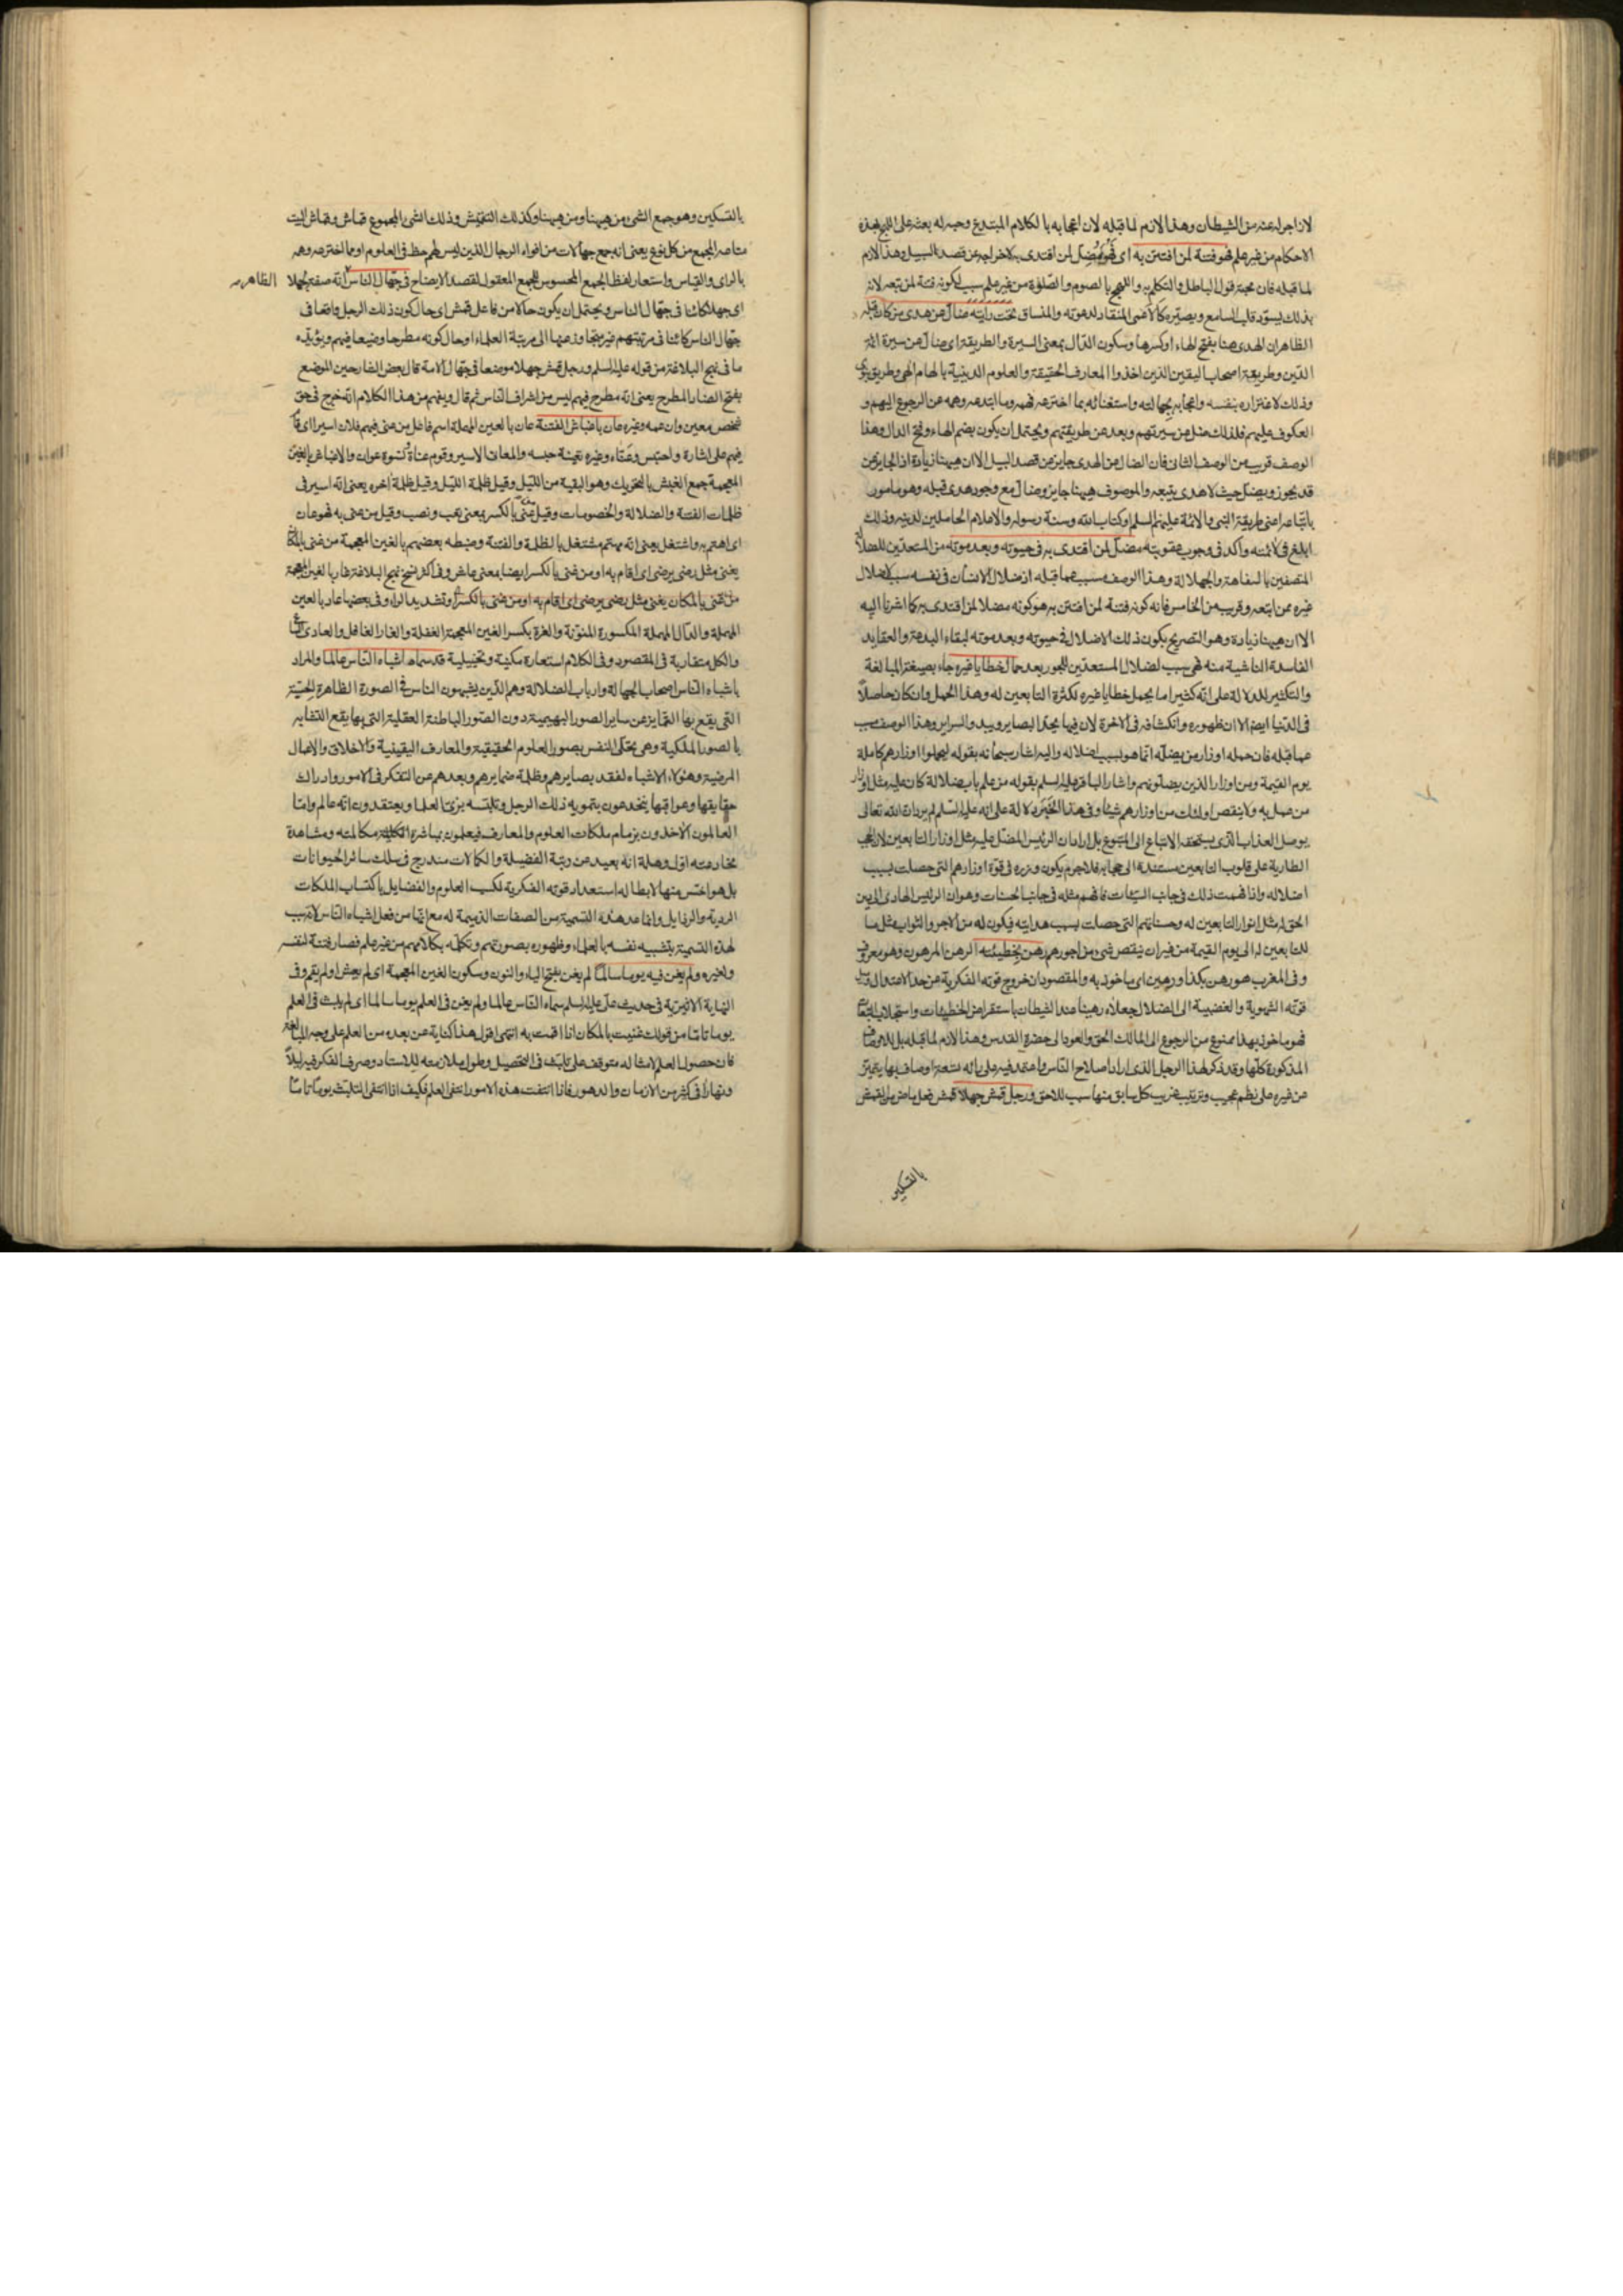 لان اجراه عنه من الشيطان وهذا لازم لما قبله لان اعجابه بالكلام المبتدع وحبه له بعثه على اللهج بهذه
الاحكام من غير علم فهو فتنة لمن افتتن به اى فهو مضل لمن اقتدى به لاخراجه عن قصد السبيل وهذا لازم
لما قبله فان محبة قول الباطل والتكلم به واللهج بالصوم والصلوة من غير علم سبب لكونه فتنة لمن يتبعه لانه
بذلك يسود قلب السامع ويصيره كالاعمى المنقاد لدعوته والمنساق تحت رايته ضال عن هدى من كان قبله
الظاهر ان الهدى هنا بفتح الهاء او كسرها وسكون الدال بمعنى السيرة والطريقة اى ضال عن سيرة ائمة
الدين وطريقة اصحاب اليقين الذين اخذوا المعارف الحقيقة والعلوم الدينية بالهام الهى وطريق نبوى
وذلك لاغتراره بنفسه واعجابه بجهالته واستغنائه بما اخترعه فهمه وما ابتدعه وهمه عن الرجوع اليهم و
العكوف عليهم فلذلك ضل عن سيرتهم وبعد عن طريقتهم ويحتمل ان يكون بضم الهاء وفتح الدال وهذا
الوصف قريب من الوصف الثانى فان الضال عن الهدى جاير عن قصد السبيل الا ان هيهنا زيادة اذ الجاير عن
قد يجوز ويضل حيث لا هدى يتبعه والموصوف هيهنا جاير وضال مع وجود هدى قبله وهو مامور
باتباعه اعنى طريقة النبى والائمة عليهم السلم او كتاب الله وسنة رسوله والاعلام الحاملين لدينه وذلك
ابلغ فى لائمته وآكد فى وجوب عقوبته مضل لمن اقتدى به فى حيوته وبعد موته من المستعدين للضلالة
المتصفين بالسفاهة والجهالة وهذا الوصف مسبب عما قبله اذ ضلال الانسان فى نفسه سبب لاضلال
غيره ممن اتبعه وقريب من الخامس فانه كونه فتنة لمن افتتن به هو كونه مضلا لمن اقتدى به كما اشرنا اليه
الا ان هيهنا زيادة وهو التصريح بكون ذلك الاضلال فى حيوته وبعد موته لبقاء البدعة والعقايد
الفاسدة الناشية منه فهى سبب لضلال المستعدين للجور بعده حمال خطايا غيره جاء بصيغة المبالغة
والتكثير للدلالة على انه كثيرا ما يحمل خطايا غيره لكثرة التابعين له وهذا الحمل وان كان حاصلا
فى الدنيا ايضا الا ان ظهوره وانكشافه فى الاخرة لان فيها يحد البصاير ويبدو السراير وهذا الوصف مسبب
عما قبله فان حمله اوزار من يضله انما هو بسبب اضلاله واليه اشار سبحانه بقوله ليحملوا اوزارهم كاملة
يوم القيمة ومن اوزار الذين يضلونهم واشار الباقر عليه السلم بقوله من علم باب ضلالة كان عليه مثل اوزار
من عمل به ولا ينقص اولئك من اوزارهم شيئا وفى هذا الخبر دلالة على انه عليه السلم لم يرد ان الله تعالى
يوصل العذاب الذى يستحقه الاتباع الى المتبوع بل اراد ان الرئيس المضل عليه مثل اوزار التابعين لان الحجب
الطارية على قلوب التابعين مستندة الى حجابه فلا جرم يكون وزره فى قوة اوزارهم التى حصلت بسبب
اضلاله واذا فهمت ذلك فى جانب السيئات فافهم مثله فى جانب الحسنات وهو ان الرئيس الهادى الى دين
الحق له مثل انوار التابعين له وحسناتهم التى حصلت بسبب هدايته فيكون له من الاجر والثواب مثل ما
للتابعين له الى يوم القيمة من غير ان ينقص شىء من اجورهم رهن بخطيئته الرهن المرهون وهو معروف
وفى المغرب هو رهن بكذا ورهين اى ماخوذ به والمقصود ان خروج قوته الفكرية عن حد الاعتدال وميل
قوته الشهوية والغضبية الى الضلال جعلاه رهينا عند الشيطان باستقراض الخطيئات واستجلاب التبعات
فهو ماخوذ بهذا ممنوع من الرجوع الى المالك الحق والعود الى حضرة القدس وهذا لازم لما قبله بل للاوصاف
المذكورة كلها وقد ذكر لهذا الرجل الذى اراد اصلاح الناس واعتمد فيه على رائه تسعة اوصاف بها يتميز
عن غيره على نظم عجيب وترتيب غريب كل سابق منها سبب للاحق ورجل قمش جهلا قمش فعل ماض من القمش
بالتسكين
بالتسكين وهو جمع الشىء من هيهنا ومن هيهنا وكذلك التقميش وذلك الشىء المجموع قماش وقماش البيت
متاعه المجمع من كل نوع يعنى انه جمع جهالات من افواه الرجال الذين ليس لهم حظ فى العلوم او مما اخترعه وهمه
بالراى والقياس واستعار لفظ الجمع المحسوس للجمع المعقول لقصد الايضاح فى جهال الناس انه صفة لجهلا
الظاهر
اى جهلا كائنا فى جهال الناس ويحتمل ان يكون حالا من فاعل قمش اى حال كون ذلك الرجل واقعا فى
جهال الناس كائنا فى مرتبتهم غير متجاوز عنها الى مرتبة العلماء او حال كونه مطرحا وضيعا فيهم ويؤيده
ما فى نهج البلاغة من قوله عليه السلم ورجل قمش جهلا موضعا فى جهال الامة قال بعض الشارحين الموضع
بفتح الضاد المطرح يعنى انه مطرح فيهم ليس من اشراف الناس ثم قال ويفهم من هذا الكلام انه خرج فى حق
شخص معين وان عمه وغيره عان باغباش الفتنة عان بالعين المهملة اسم فاعل من عنى فيهم فلان اسيرا اى قام
فيهم على اسارة واحتبس وعناه وغيره تعنية حبسه والعانى الاسير وقوم عناة ونسوة عوان والاغباش بالغين
المعجمة جمع الغبش بالتحريك وهو البقية من الليل وقيل ظلمة الليل وقيل ظلمة اخره يعنى انه اسير فى
ظلمات الفتنة والضلالة والخصومات وقيل من عنى بالكسر بمعنى تعب ونصب وقيل من عنى به فهو عان
اى اهتم به واشتغل يعنى انه مهتم مشتغل بالظلمة والفتنة وضبطه بعضهم بالغين المعجمة من غنى بالمكان
يغنى مثل رضى يرضى اى اقام به او من غنى بالكسر ايضا بمعنى عاش وفى اكثر نسخ نهج البلاغة غار بالغين المعجمة
من غنى بالمكان يغنى مثل رضى يرضى اى اقام به او من غنى بالكسر وتشديد الراء وفى بعضها عاد بالعين
المهملة والدال المهملة المكسورة المنونة والغرة بكسر الغين المعجمة الغفلة والغار الغافل والعادى
والكل متقاربة فى المقصود وفى الكلام استعارة مكنية وتخييلية قد سماه اشباه الناس عالما والمراد
باشباه الناس اصحاب الجهالة وارباب الضلالة وهم الذين يشبهون الناس فى الصورة الظاهرة الحسية
التى يقع بها التمايز عن ساير الصور البهيمية دون الصور الباطنة العقلية التى بها يقع التشابه
بالصور الملكية وهى تحلى النفس بصور العلوم الحقيقية والمعارف اليقينية والاخلاق والاعمال
المرضية وهؤلاء الاشباه لفقد بصايرهم وظلمة ضمايرهم وبعدهم عن التفكر فى الامور وادراك
حقايقها وعواقبها ينخدعون بتمويه ذلك الرجل وتلبسه بزى العلما ويعتقدون انه عالم واما
العالمون الاخذون بزمام ملكات العلوم والمعارف فيعلمون بمباشرة مكالمته ومشاهدة
مخادعته اول وهلة انه بعيد عن رتبة الفضيلة والكمالات مندرج فى سلك سائر الحيوانات
بل هو اخس منها لابطاله استعداد قوته الفكرية لكسب العلوم والفضايل باكتساب الملكات
الردية والرذايل وانما عد هذه التسمية من الصفات الذميمة له مع انها من فعل اشباه الناس لانه سبب
لهذه التسمية بتشبيه نفسه بالعلماء وظهوره بصورتهم وتكلمه بكلامهم من غير علم فصار فتنة لنفسه
ولغيره ولم يغن فيه يوما سالما لم يغن بفتح الياء والنون وسكون الغين المعجمة اى لم يعش او لم يقم وفى
النهاية الاثيرية فى حديث على عليه السلم سماه الناس عالما ولم يغن فى العلم يوما سالما اى لم يلبث فى العلم
يوما تاما من قولك غنيت بالمكان اذا اقمت به انتهى اقول هذا كناية عن بعده من العلم على وجه المبالغة
فان حصول العلم لامثاله متوقف على تلبث فى التحصيل وطول ملازمته للاستاد وصرف الفكر فيه ليلا
ونهارا فى كثير من الازمان والدهور فاذا انتفت هذه الامور انتفى العلم فكيف اذا انتفى التلبث يوما تاما